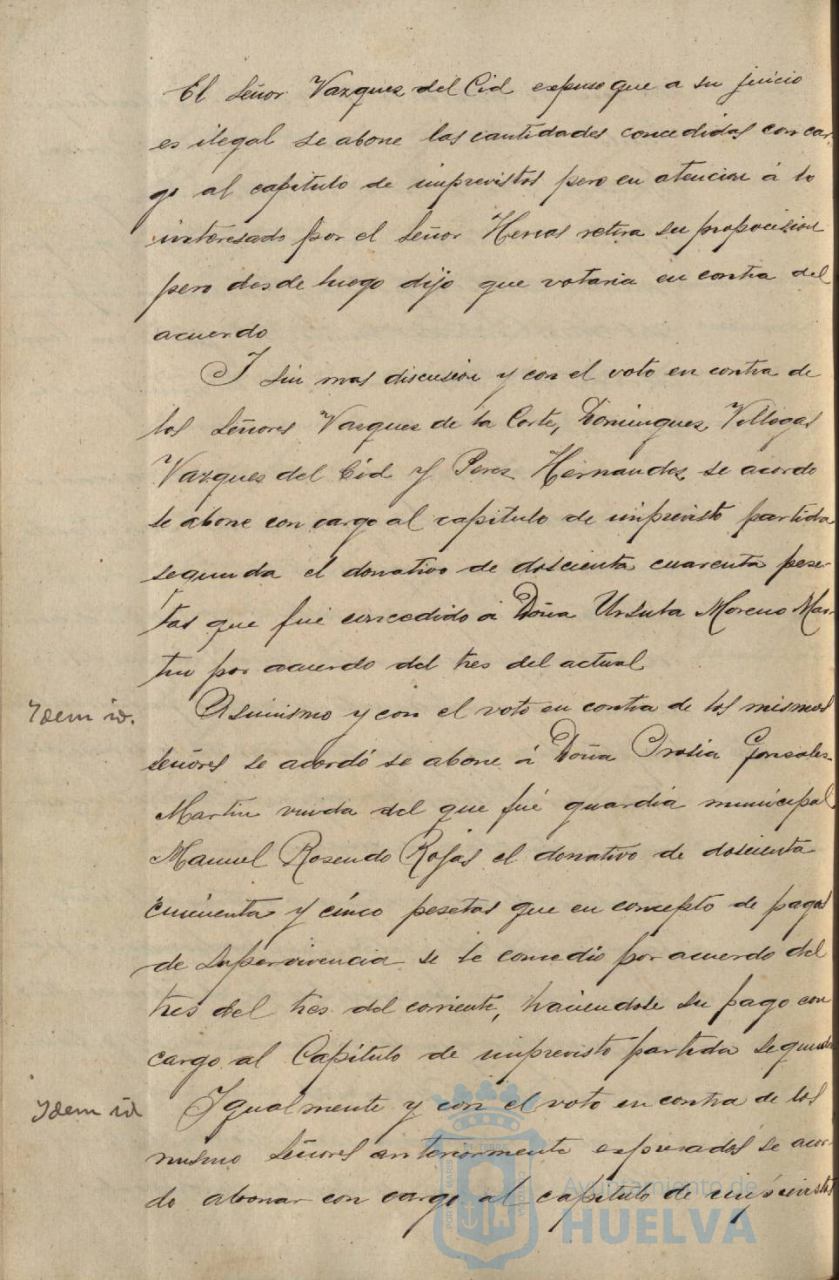 El Señor Vazquez del Cid expuso que a su juicio
es ilegal se abone las cantidades concedidas con car-
go al capitulo de imprevistos pero en atencion á lo
interesado por el Señor Heras retira su proposicion
pero desde luego dijo que votaria en contra del
acuerdo
Y sin mas discusion y con el voto en contra de
los Señores Vazquez de la Corte, Dominguez, Villegas
Vazques del Cid y Perez Hernandez, se acordo
se abone con cargo al capitulo de imprevisto partida
segunda el donativo de doscienta cuarenta pese-
tas que fué concedido á Doña Ursula Moreno Mar-
tin por acuerdo del tres del actual
Ydem id.
Asimismo y con el voto en contra de los mismos
señores se acordó se abone á Doña Orosia Gonzales
Martin viuda del que fué guardia municipal
Manuel Rosendo Rojas el donativo de doscienta
cincuenta y cinco pesetas que en concepto de pagas
de Supervivencia se le concedio por acuerdo del
tres del tres del corriente, haciendose su pago con
cargo al Capitulo de imprevisto partida segunda
Ydem id
Igualmente y con el voto en contra de los
mismo Señores anteriormente expresados se acor-
do abonar con cargo al capitulo de imprevistos
Ayuntamiento de
HUELVA